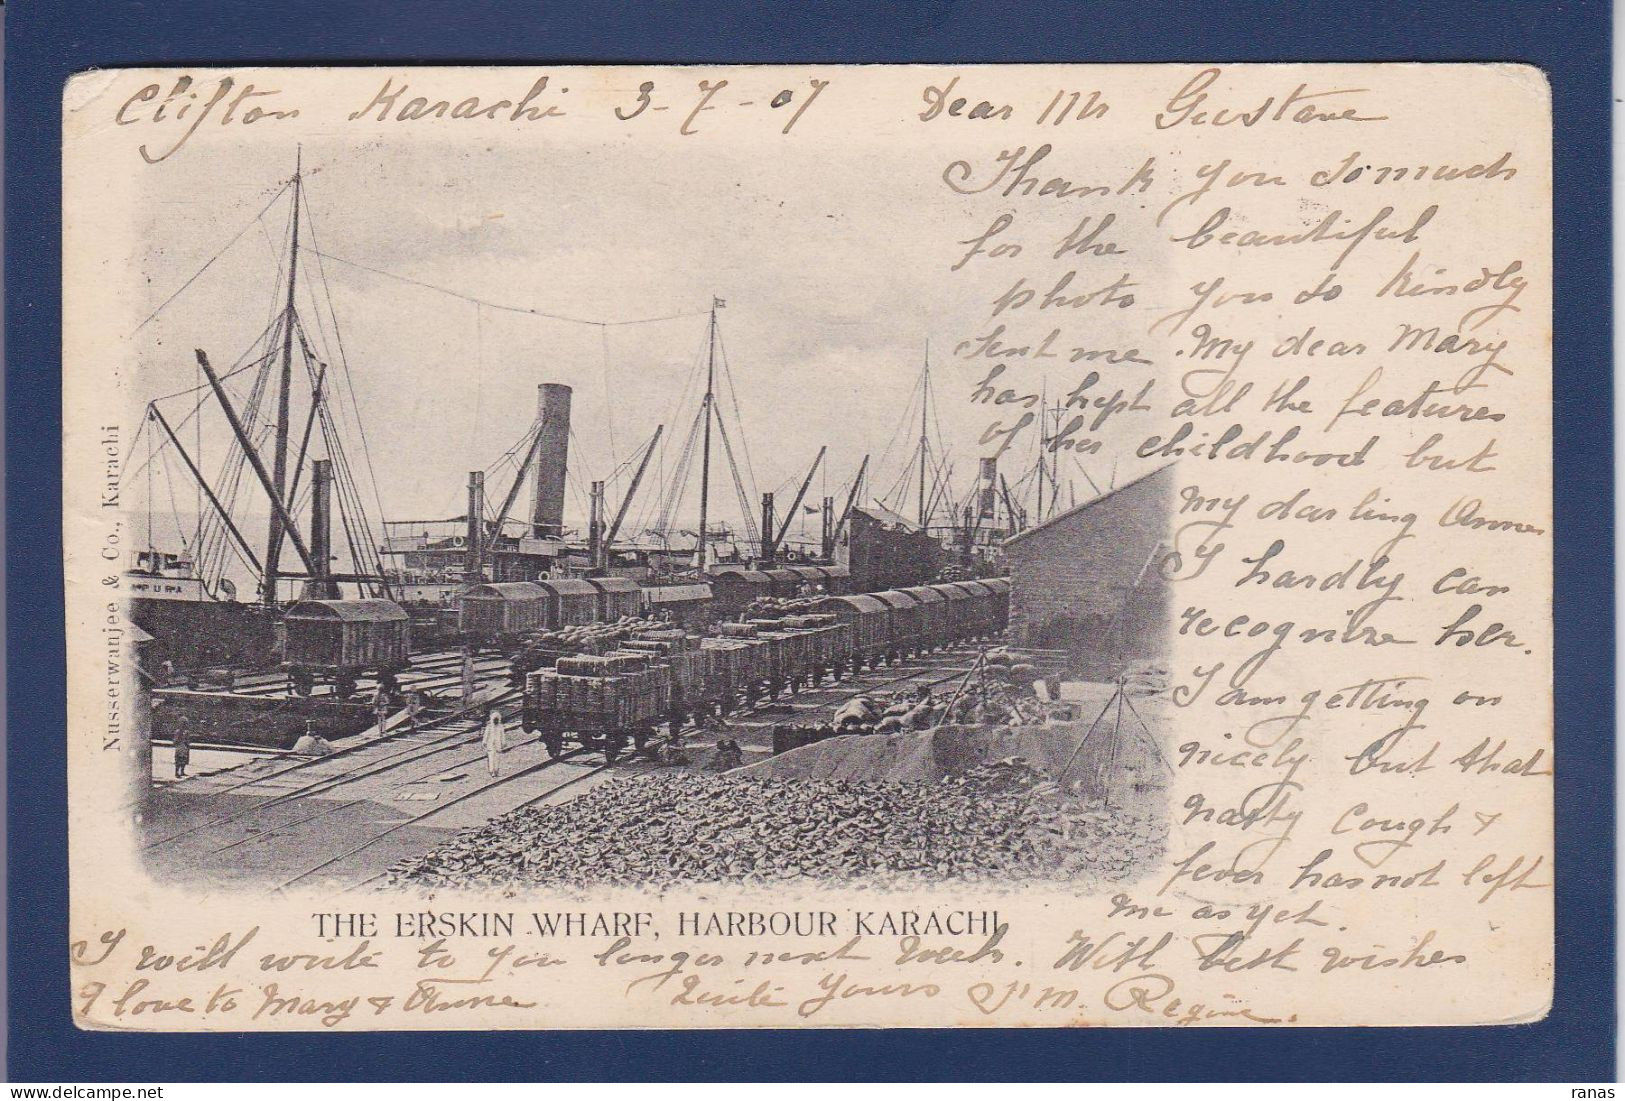 Clifton Karachi 3-7-07 Dear Mr Gustave
Thank you so much
for the beautiful
photo you so kindly
sent me. My dear Mary
has kept all the features
of her childhood but
my darling Anne
I hardly can
recognize her.
I am getting on
nicely but that
nasty cough &
fever has not left
me as yet.
I will write to you longer next week. With best wishes
& love to Mary & Anne Yours M. Regine.
THE ERSKIN WHARF, HARBOUR KARACHI
Nusserwanjee & Co., Karachi
PURA
ranas